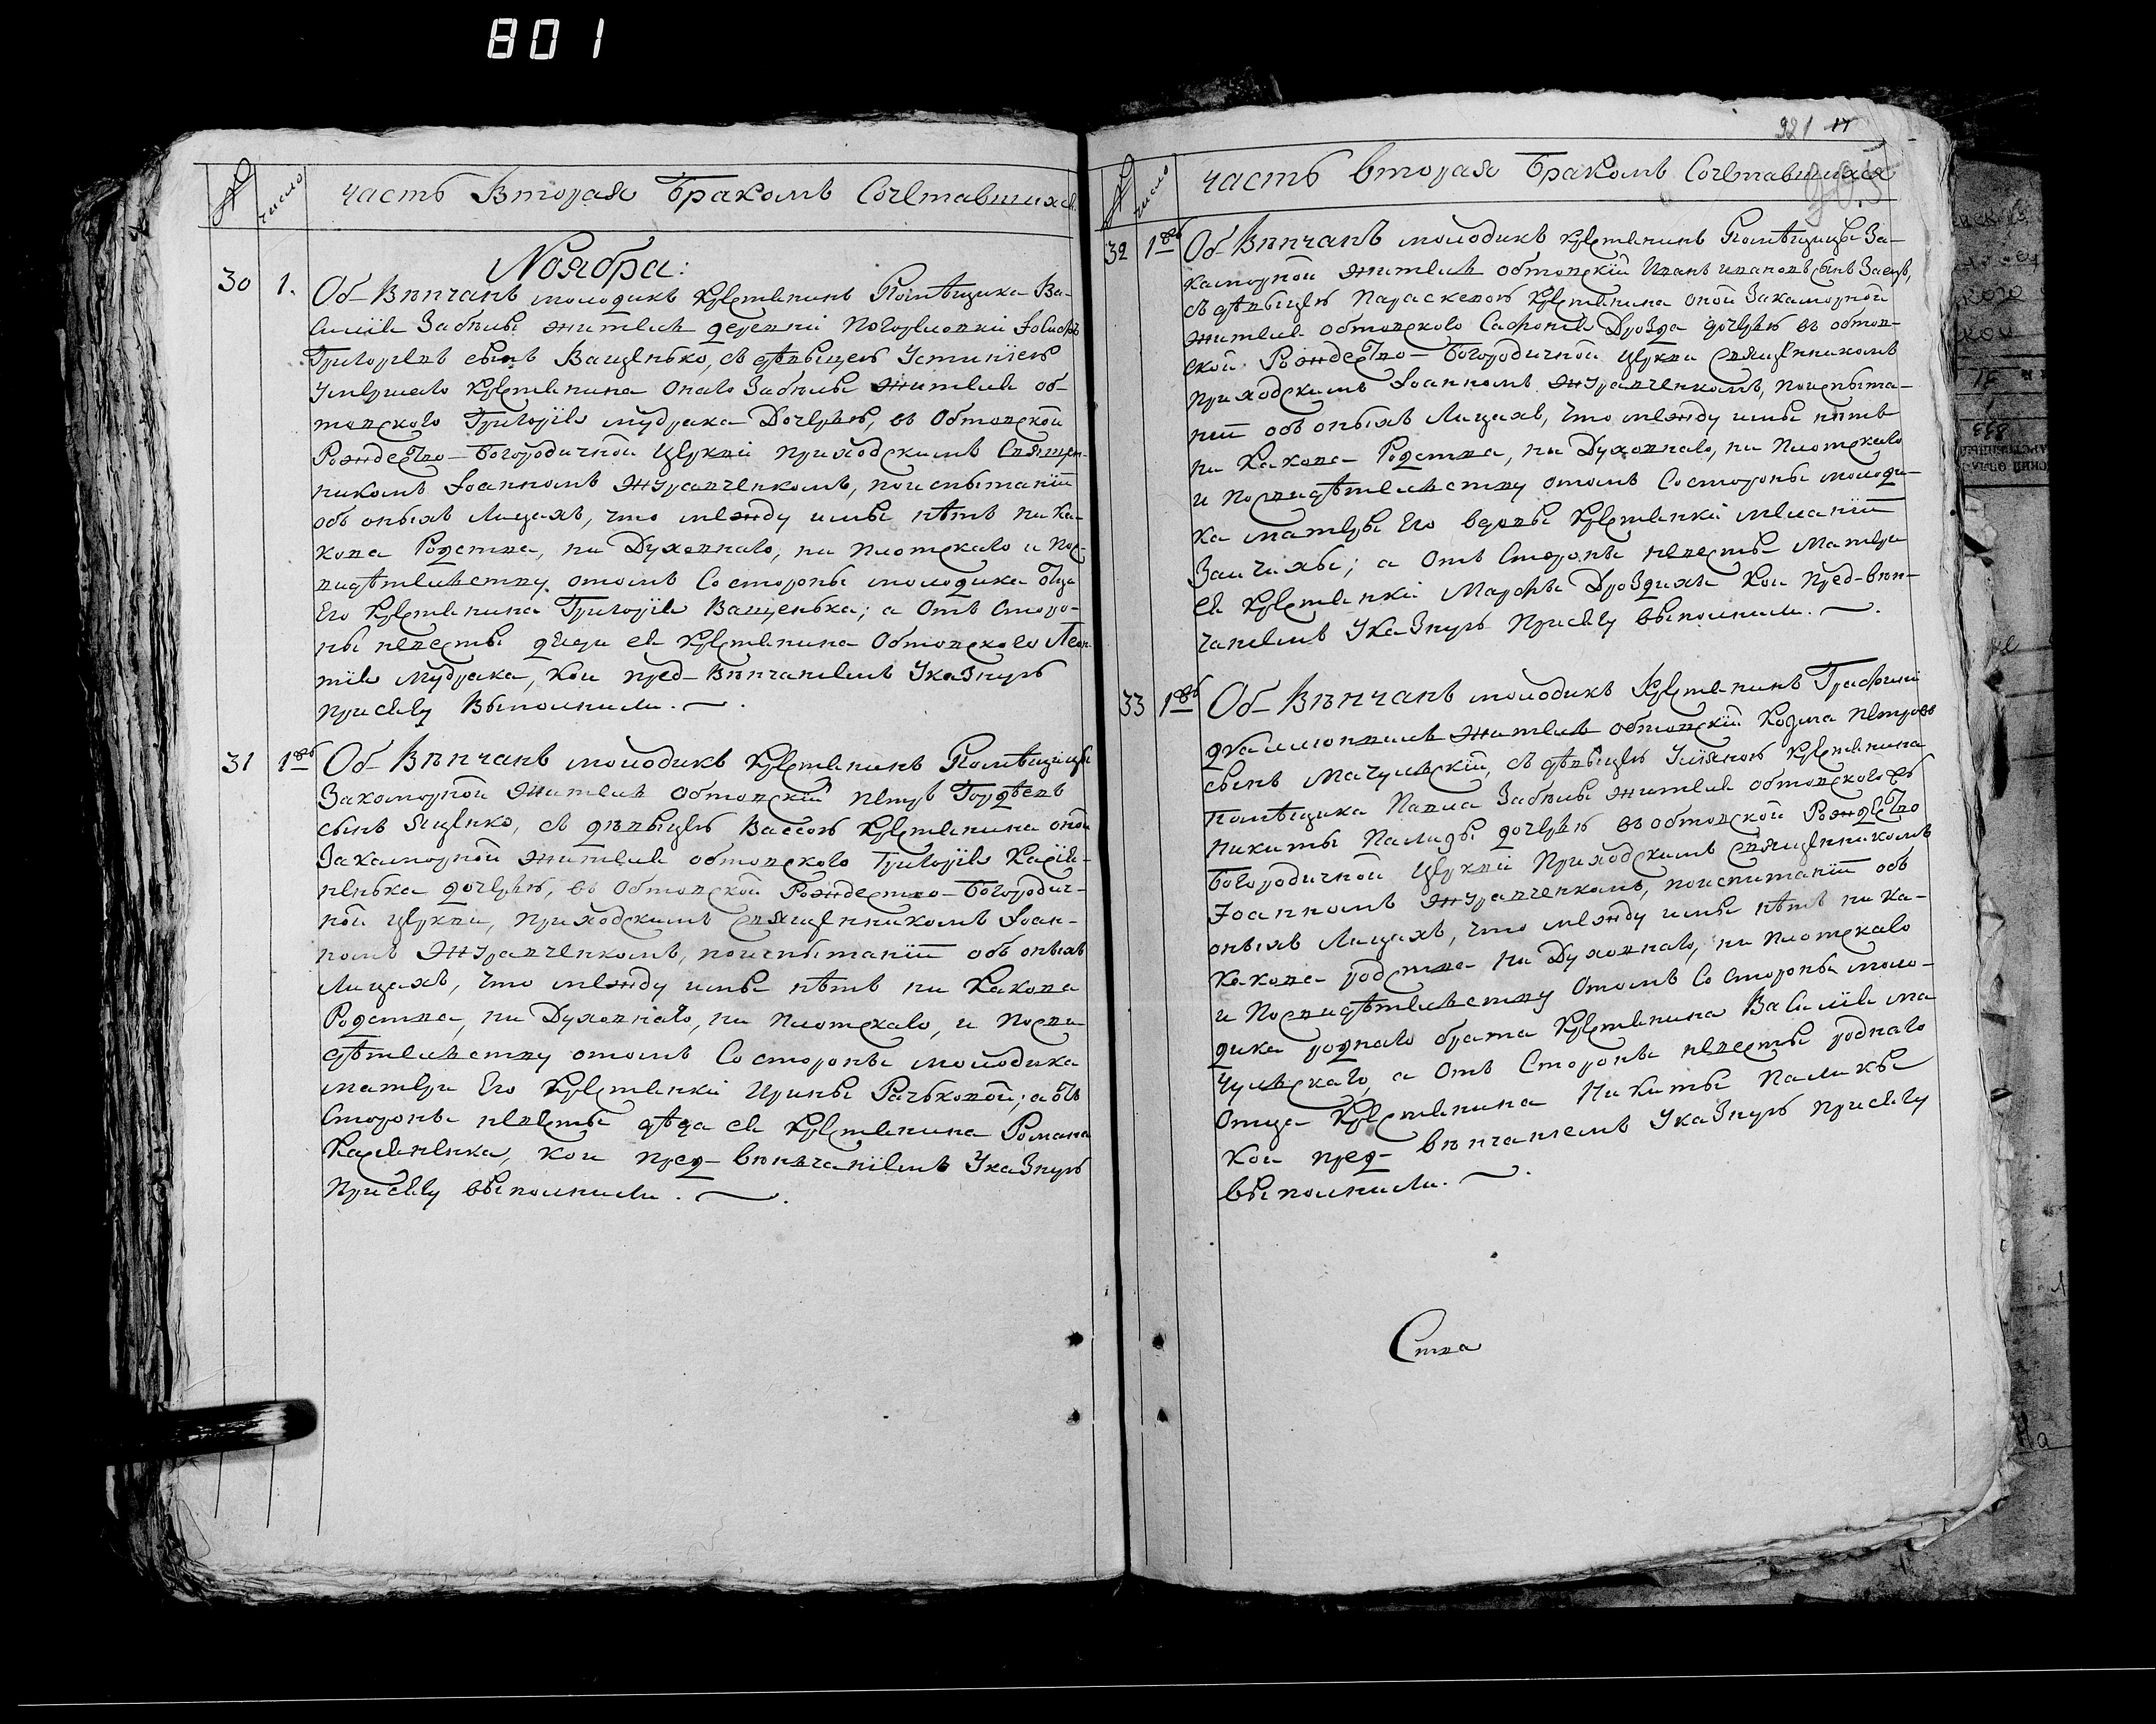 801
№ число часть Вторая браком Сочетавшихся
Ноября:
30 1. Об-Вѣнчанъ молодикъ крестьянинъ Помѣщика Ва-
силія Забѣлы житель деревни Погорѣловки
Григоріевъ сынъ Ващенько, съ дѣвицею Устиніею
Умершего крестьянина онаго Забѣлы жителя об-
товского Григорія мудрака Дочерью, въ Обтовской
Рождество-Богородичной Церкви приходскимъ Священ-
никомъ Іоанномъ Журавченкомъ, поиспытаніи
объ оныхъ Лицахъ, что между имы нѣтъ ни ка-
кова Родства, ни Духовнаго, ни плотскаго и пос-
видѣтельству отомъ Состороны молодика отца
Его крестьянина Григорія Ващенька; а отъ сторо-
ны невесты дяди ея крестьянина Обтовского Леон
тія Мудрака, кои пред-Вѣнчаніемъ Указную
присягу Выполнили.
31 1го Об-Вѣнчанъ молодикъ крестьянинъ Помѣщицы
Закоморной житель обтовскій петръ Гордѣевъ
сынъ Яценко, съ дѣвицею Вассою крестьянина оной
Закаморной жителя обтовского Григорія Касія-
ненька дочерью, въ Обтовской Рождество-Богородич-
ной церкви, приходскимъ священникомъ Іоан-
номъ Журавченкомъ, поиспытаніи объ оныхъ
Лицахъ, что между имы нѣтъ ни какова
Родства, ни Духовнаго, ни плотскаго, и посви
дѣтельству отомъ Состороны молодика
матери Его крестьянки Ирины Рачьковой; а отъ
стороны невесты дѣда ея крестьянина Романа
Касяненка, кои пред-вѣнчаніемъ Указную
присягу выполнили.
321 17
305
№ число часть вторая браком Сочетавшихся
32 1го Об-Вѣнчанъ молодикъ крестьянинъ Помѣщицы За-
каморной житель обтовскій Иванъ ивановъ сынъ Заецъ,
съ дѣвицею Параскевою крестьянина оной Закаморной
жителя обтовского Сафонія Дрозда дочерью въ обтов-
ской Рождество-Богородичной церкви священникомъ
приходскимъ Іоанномъ Журавченкомъ, поиспыта-
ніи объ оныхъ Лицахъ, что между имы нѣтъ
ни какова Родства, ни Духовнаго, ни плотскаго
и посвидѣтельству отомъ Состороны молоди-
ка матери Его вдовы крестьянки меланіи
Заичихы; а отъ Стороны невесты матери
ея крестьянки Марфы Дроздихи кои пред-вѣн-
чаніемъ Указную присягу выполнили.
33 1го Об-Вѣнчанъ молодикъ крестьянинъ Графини
житель обтовскій Козма петровъ
сынъ Мачульскій, съ дѣвицею Уліяною крестьянина
помѣщика Павла Забѣлы жителя обтовского
никиты дочерью въ обтовской Рождество
Богородичной церкви приходскимъ священникомъ
Іоанномъ Журавченкомъ, поиспитаніи объ
оныхъ Лицахъ, что между имы нѣтъ ни ка-
какова родства ни Духовнаго, ни плотскаго
и посвидѣтельству отомъ Со стороны моло-
дика роднаго брата крестьянина Василія ма
чульскаго, а отъ Стороны невесты роднаго
отца крестьянина Никиты
кои пред-вѣнчаніемъ Указную присягу
выполнили.
Ства